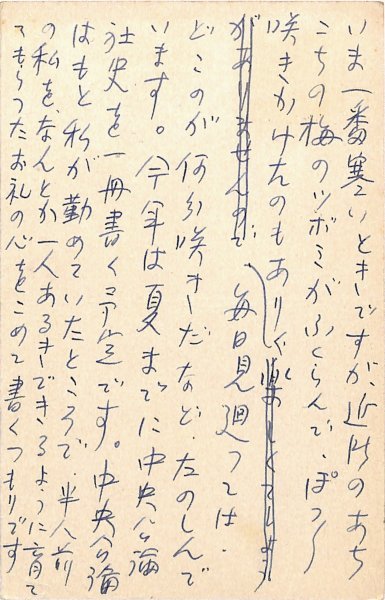 いま一番寒いときですが、近所のあち
こちの梅のツボミがふくらんで、ぽつ〱
咲きかけたのもあり
がありませんので、毎日見廻つては、
どこのが何分咲きだなど、たのしんで
います。今年は夏までに中央公論
社史を一冊書く予定です。中央公論
はもと私が勤めていたところで、半人前
の私を、なんとか一人あるきできるように育て
てもらつたお礼の心をこめて書くつもりです